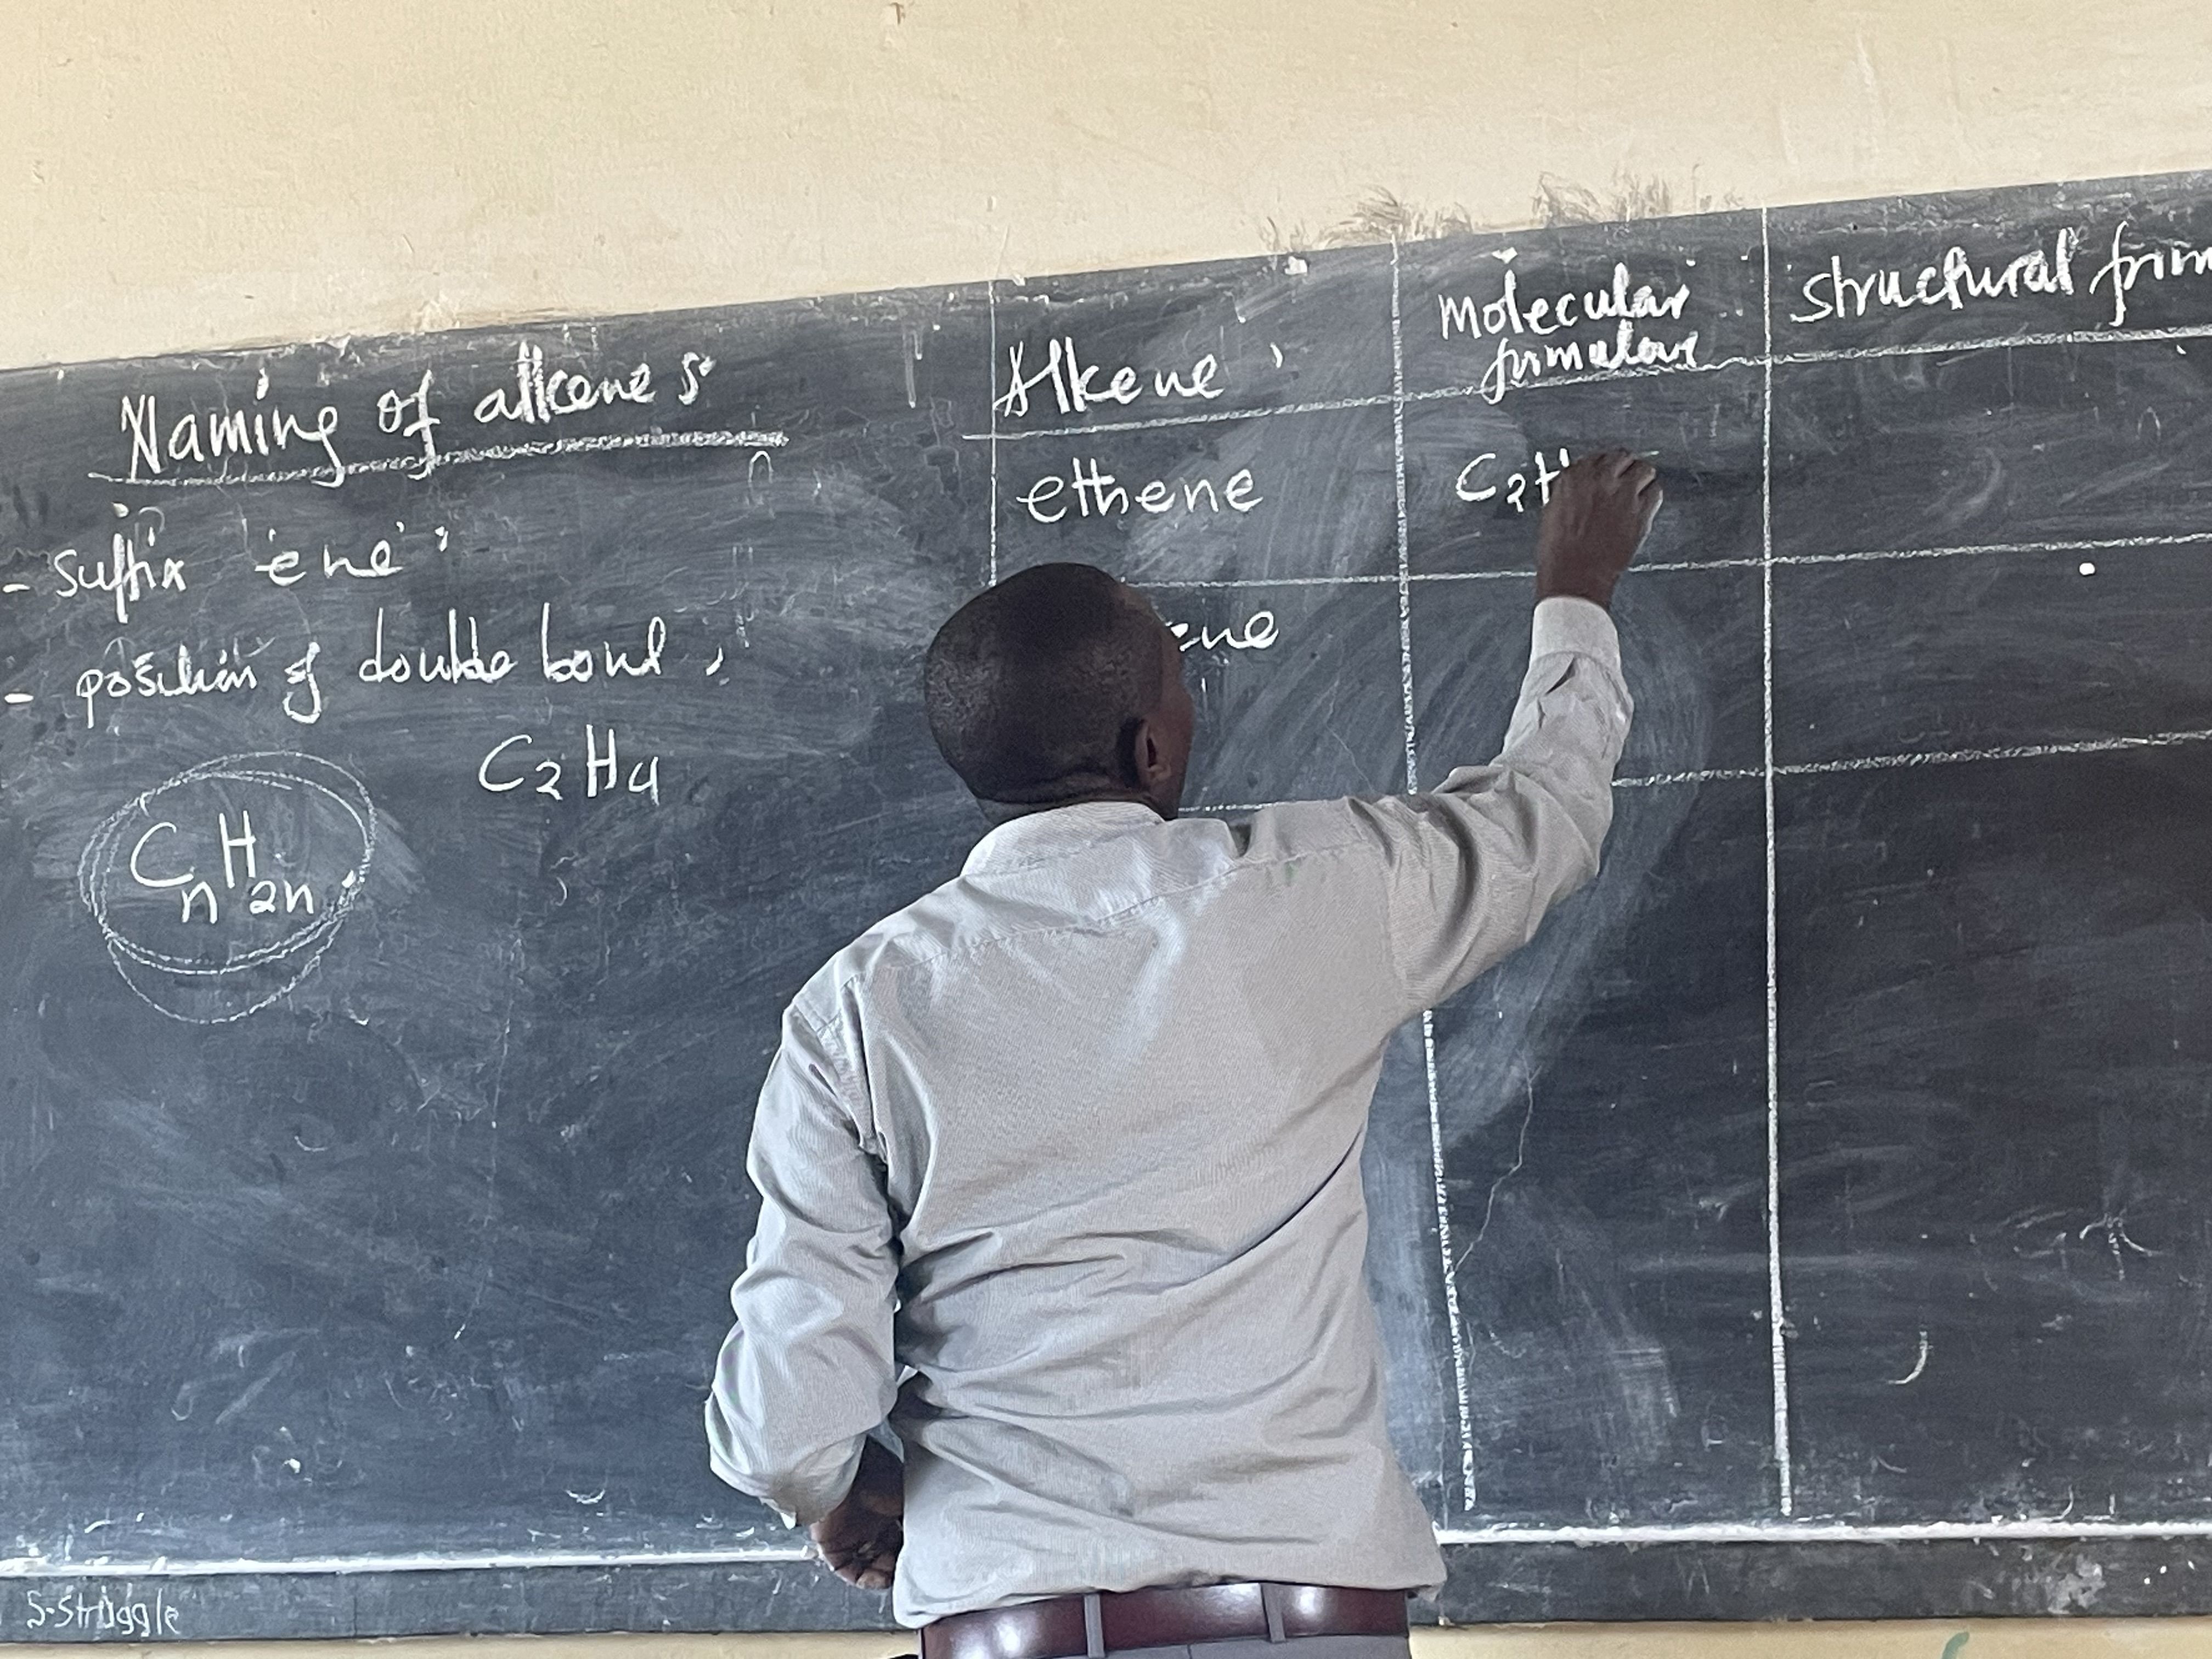 Naming of alkenes
- Suffix 'ene'
- position of double bond,
C2H4
CnH2n
Alkene
Molecular
formulae
Structural form
ethene
C2H
ene
S-struggle